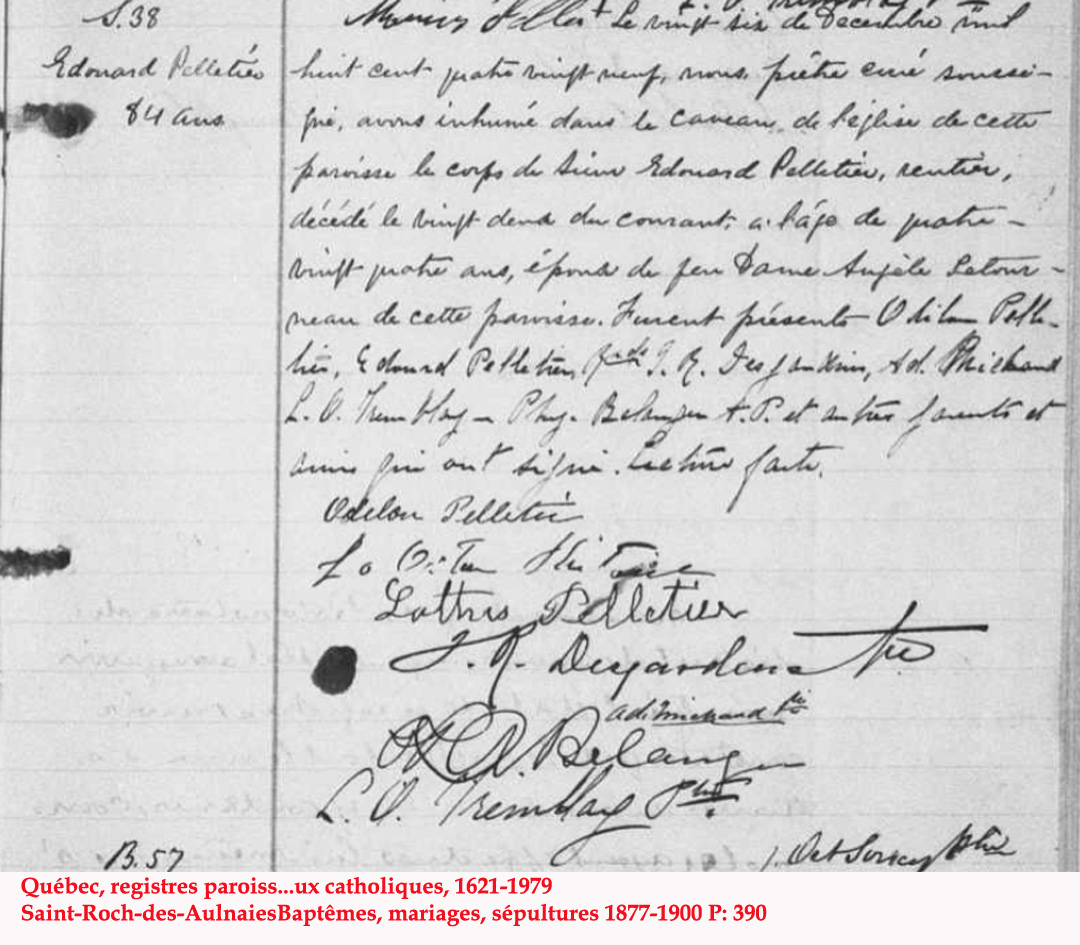 S.38
Edouard Pelletier
84 ans
Le vingt six de Decembre mil
huit cent quatre vingt neuf, nous, prêtre curé soussi-
gné, avons inhumé dans le caveau de l'église de cette
paroisse le corps de Sieur Edouard Pelletier, rentier,
décédé le vingt deux du courant, a l'âge de quatre-
vingt quatre ans, époux de feu Dame Angèle Letour-
neau de cette paroisse. Furent présents Odilon Pelle-
tier, Edouard Pelletier, Rvds J. R. Desjardins, Ad. Michaud
L. O. Tremblay - Phy. Belanger A.P. et autres parents et
amis qui ont signé. Lecture faite.
Odelon Pelletier
Pelletier
J. R. Desjardins Ptre
Ad. Michaud Ptre
A. Belanger
L. O. Tremblay Ptre.
B.57
Ptre
Québec, registres paroiss...ux catholiques, 1621-1979
Saint-Roch-des-AulnaiesBaptêmes, mariages, sépultures 1877-1900 P: 390